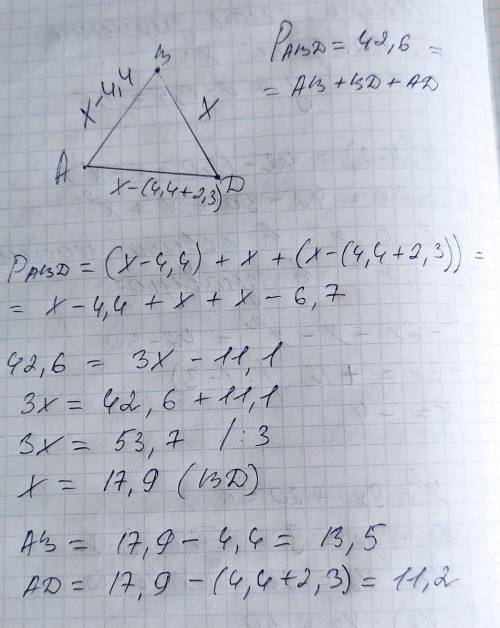 B
P ABD = 42,6 =
= AB + BD + AD
x-4,4
x
A
D
x-(4,4+2,3)
P ABD = (x-4,4) + x + (x-(4,4+2,3)) =
= x-4,4 + x + x - 6,7
42,6 = 3x - 11,1
3x = 42,6 + 11,1
3x = 53,7 /:3
x = 17,9 (BD)
AB = 17,9 - 4,4 = 13,5
AD = 17,9 - (4,4+2,3) = 11,2